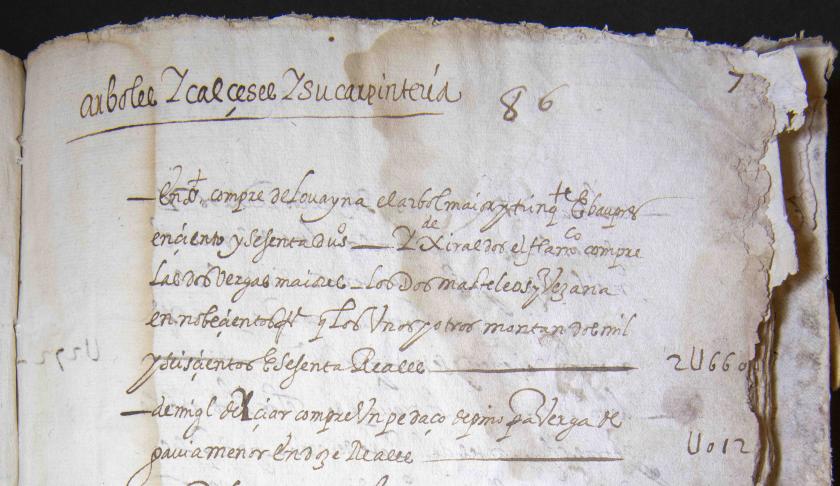 arboles Y calçeses Y su carpinteria 86
7
— En o. compre de Lovayna el arbol maior y trinqte E baupres
en çiento y sesenta dus — Y de Xiraldos el flamco compre
las dos Vergas maiores — Los Dos masteleos y Vezana
en nobeçientos q Los Vnos y otros montan dos mil
y seisçientos E sesenta Reales — 2U660
— de migl de Xciar compre Vn pedaço de pino pa Verga de
gavia menor En doze Reales — U012